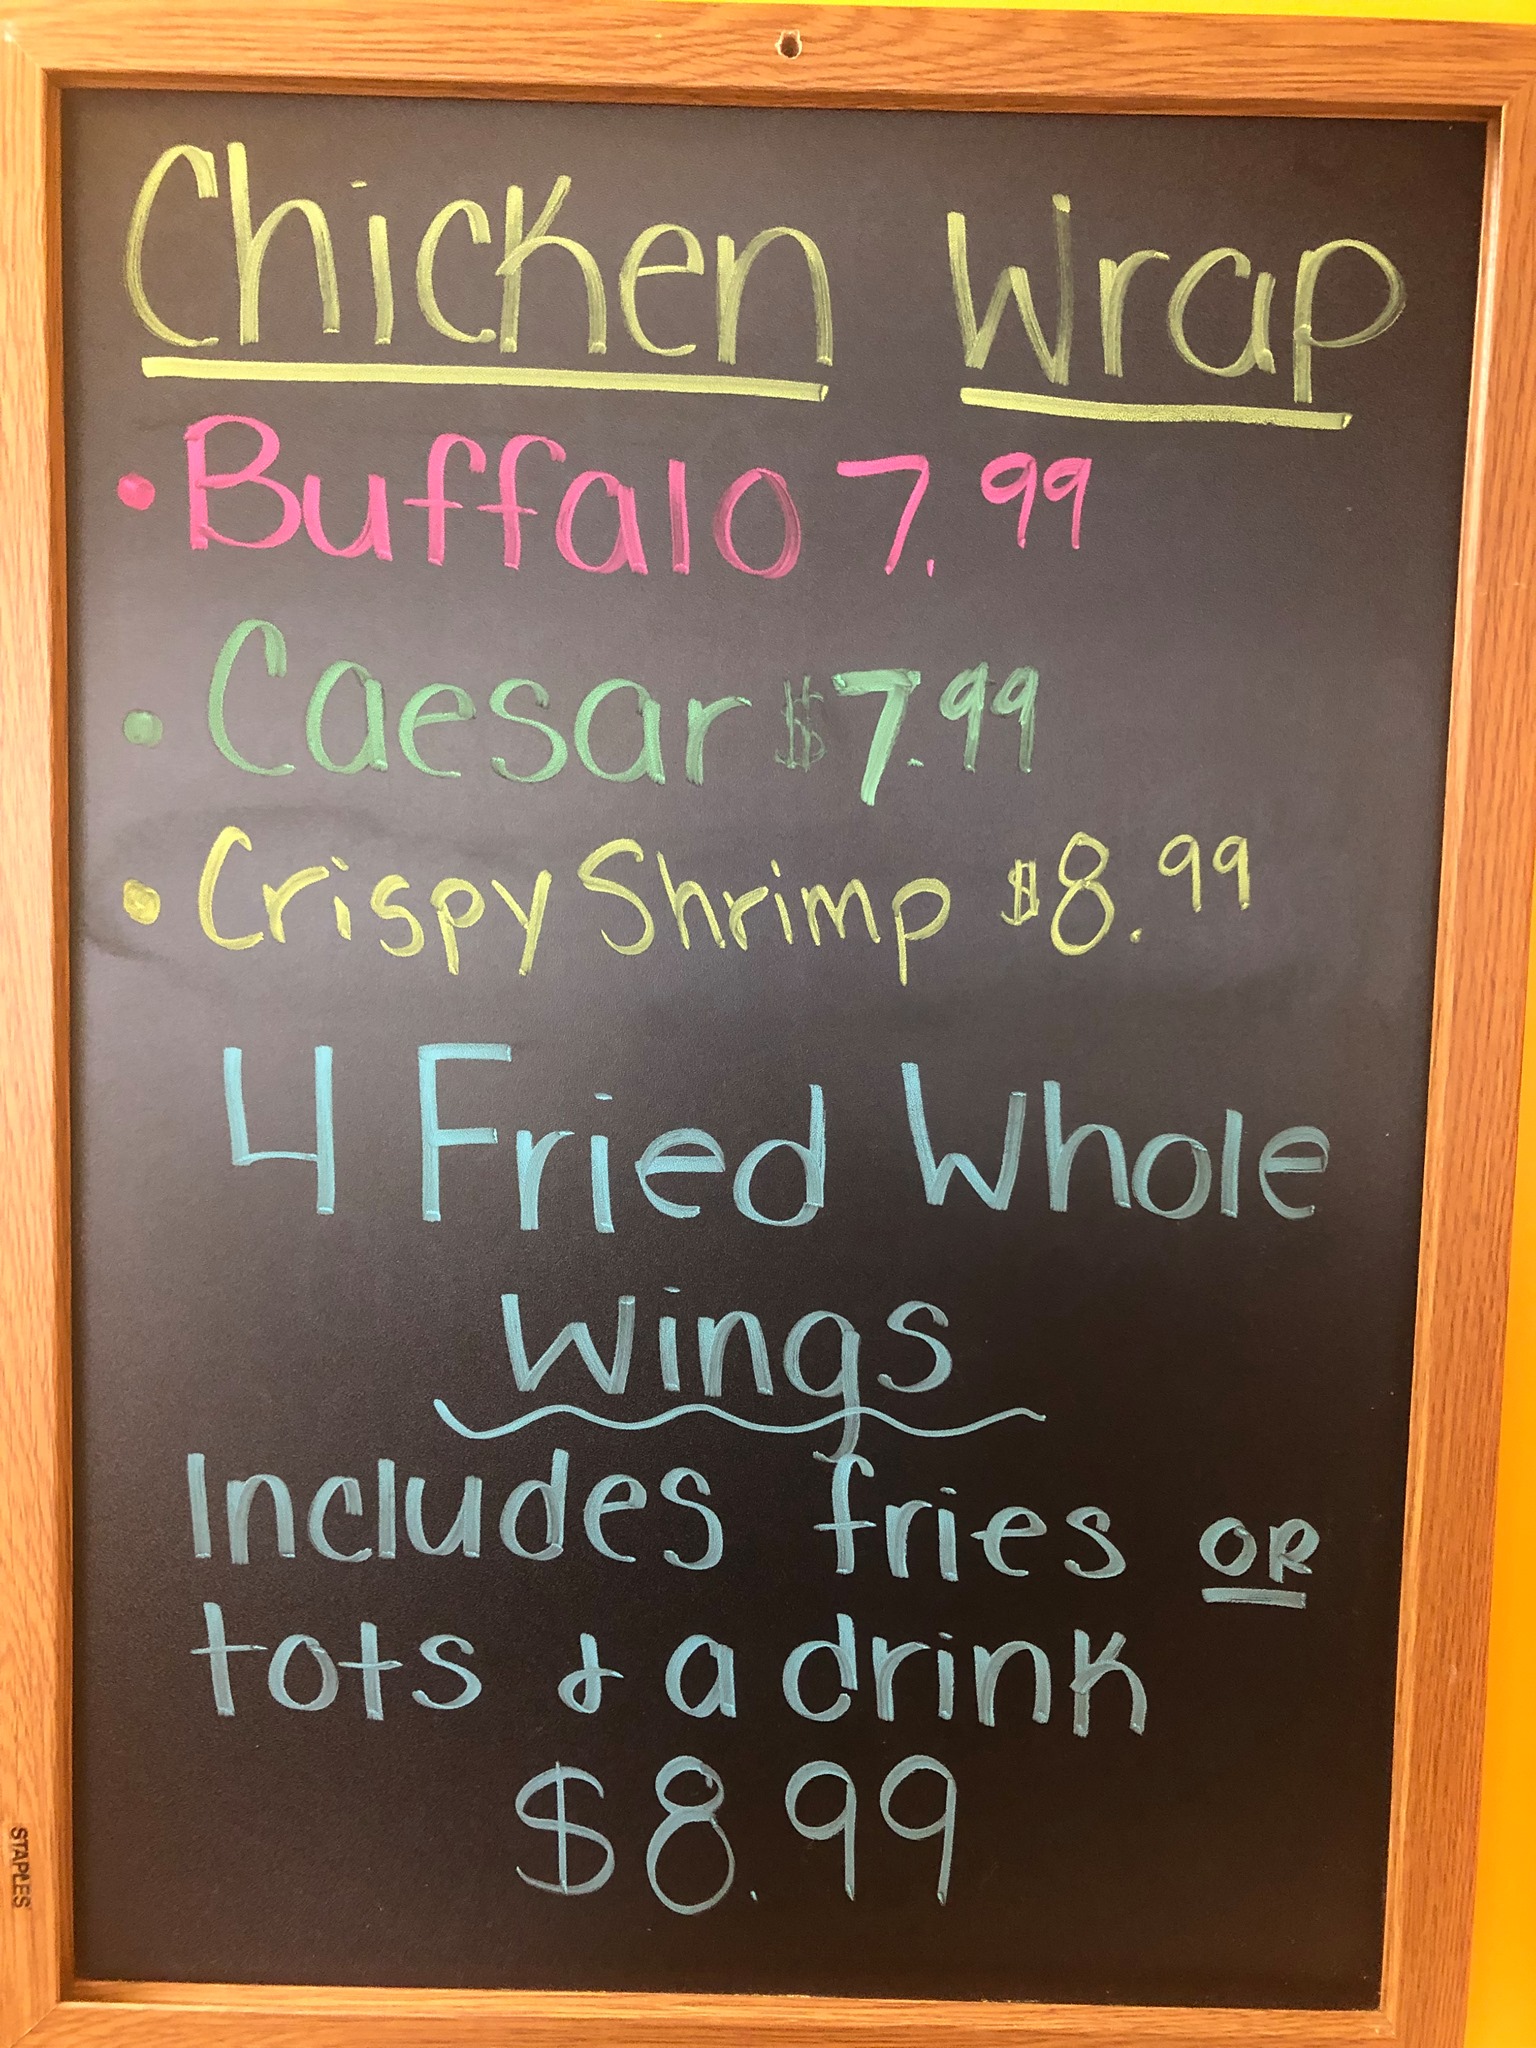 Chicken Wrap
• Buffalo 7.99
• Caesar $7.99
• Crispy Shrimp $8.99
4 Fried Whole
Wings
Includes fries OR
tots & a drink
$8.99
STAPLES